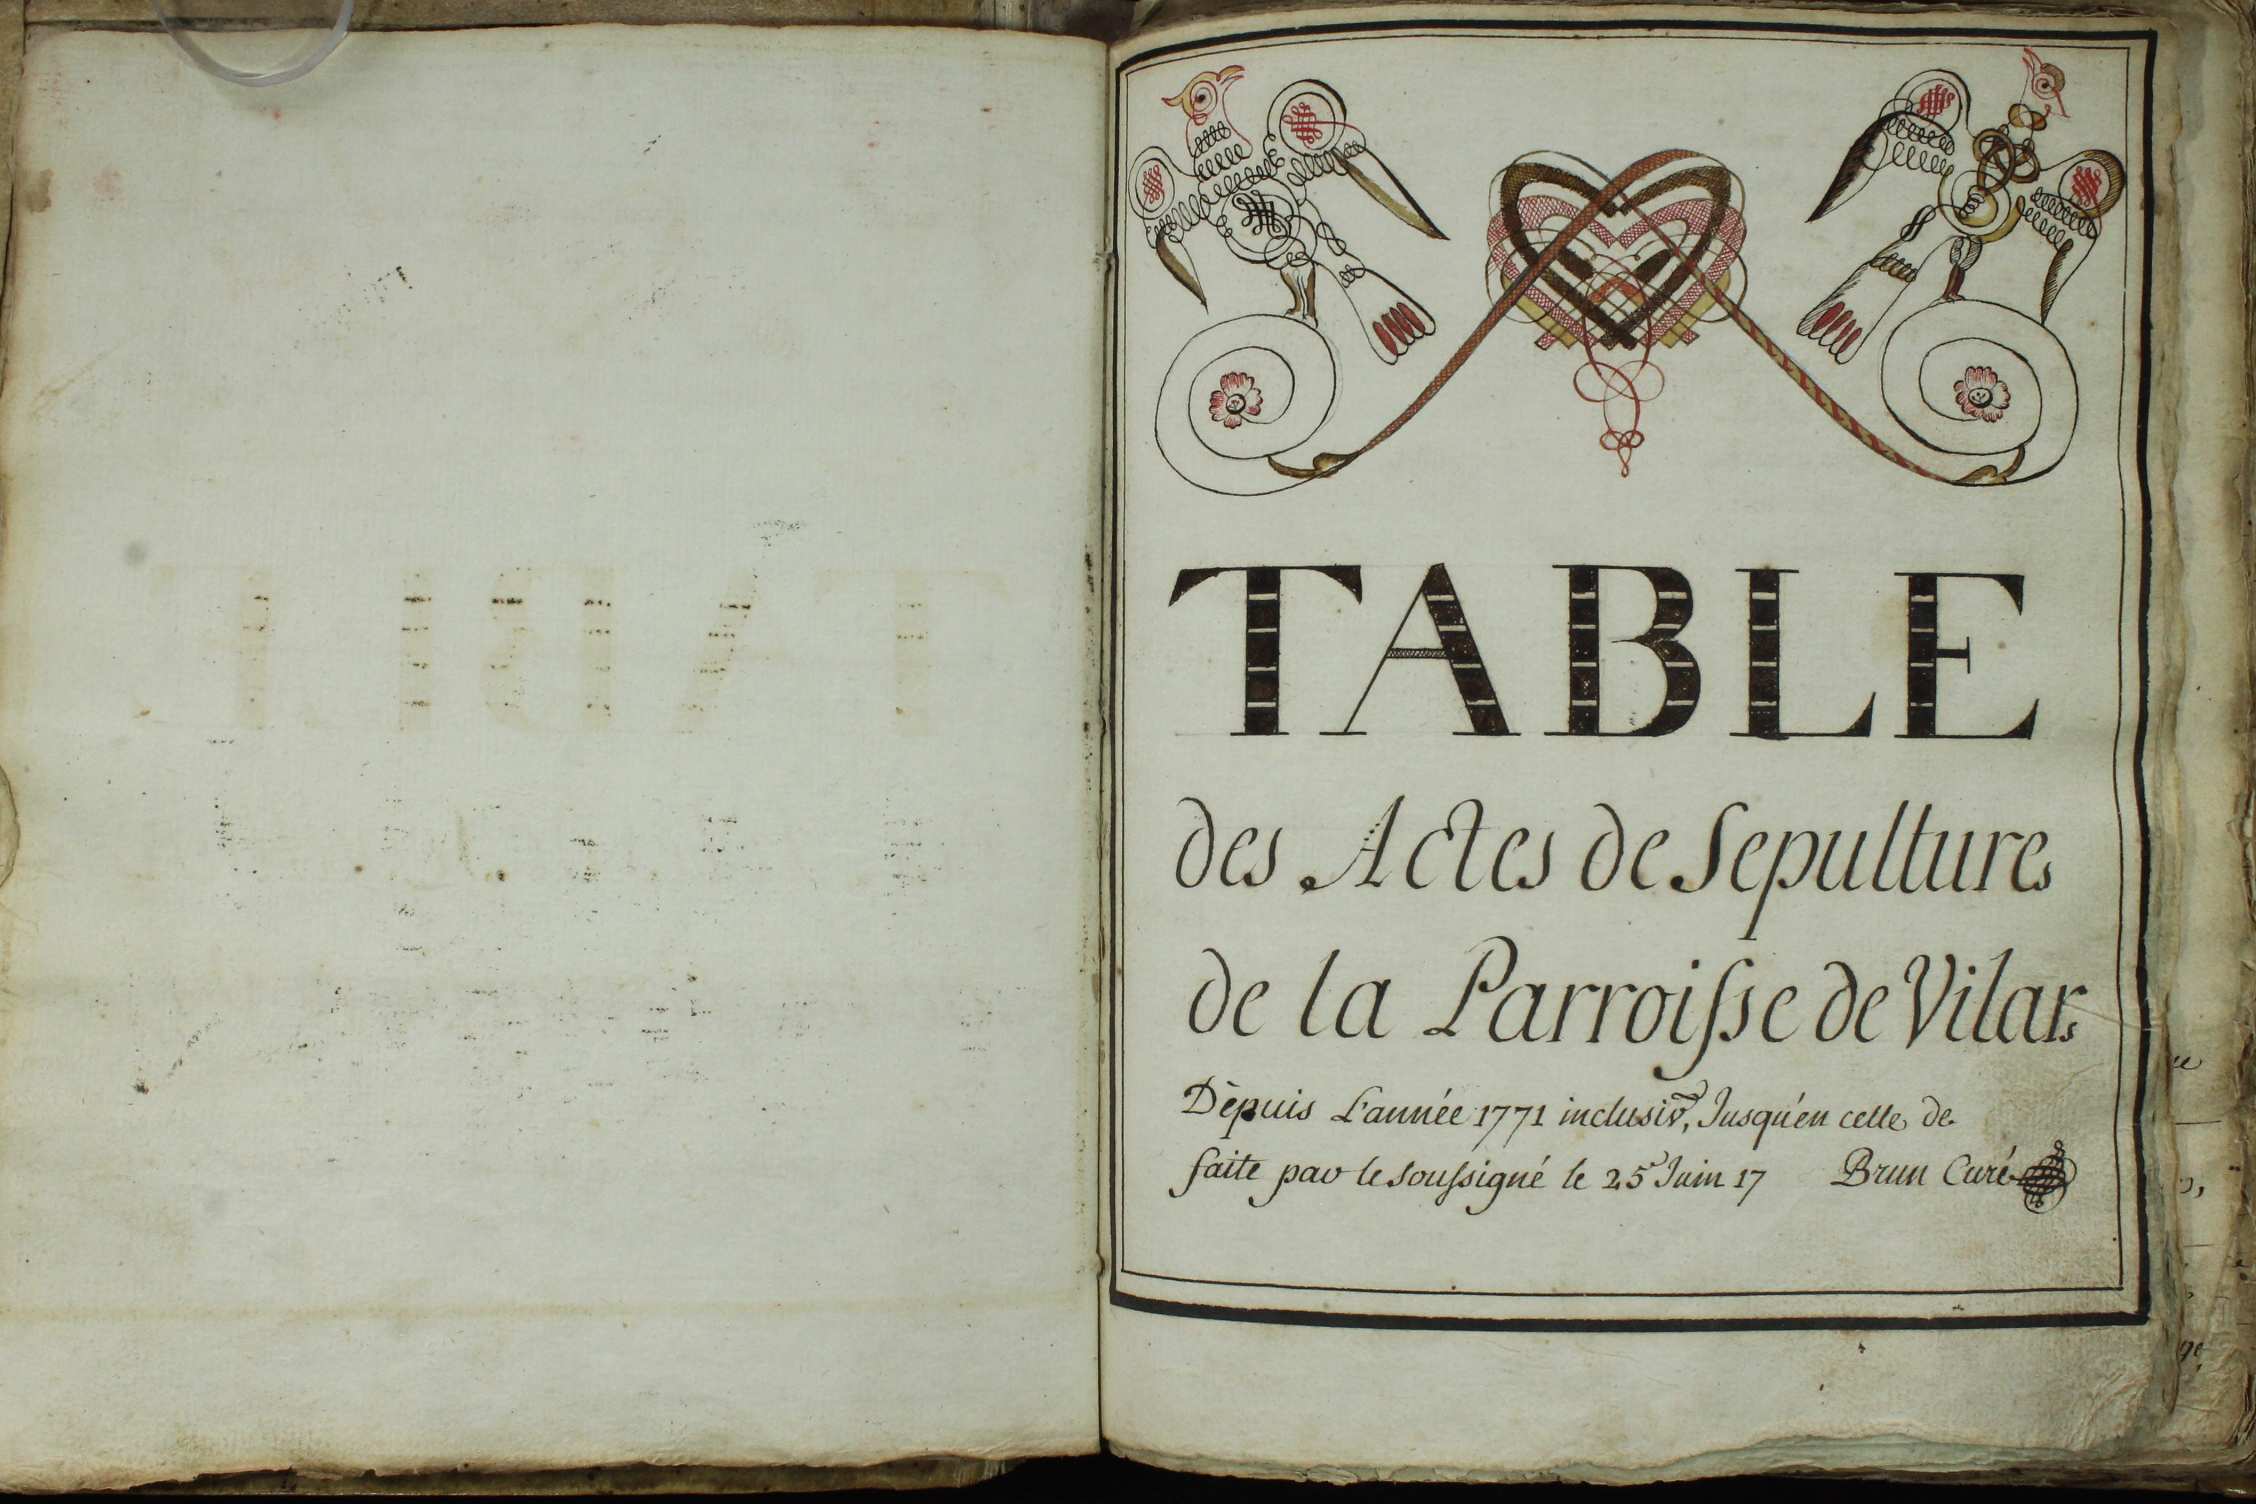 TABLE
des Actes de Sepultures
de la Parroiſse de Vilars
Dèpuis L'année 1771 inclusiv, Jusqu'en celle de
faite par le souſsigné le 25 Juin 17 Brun Curé